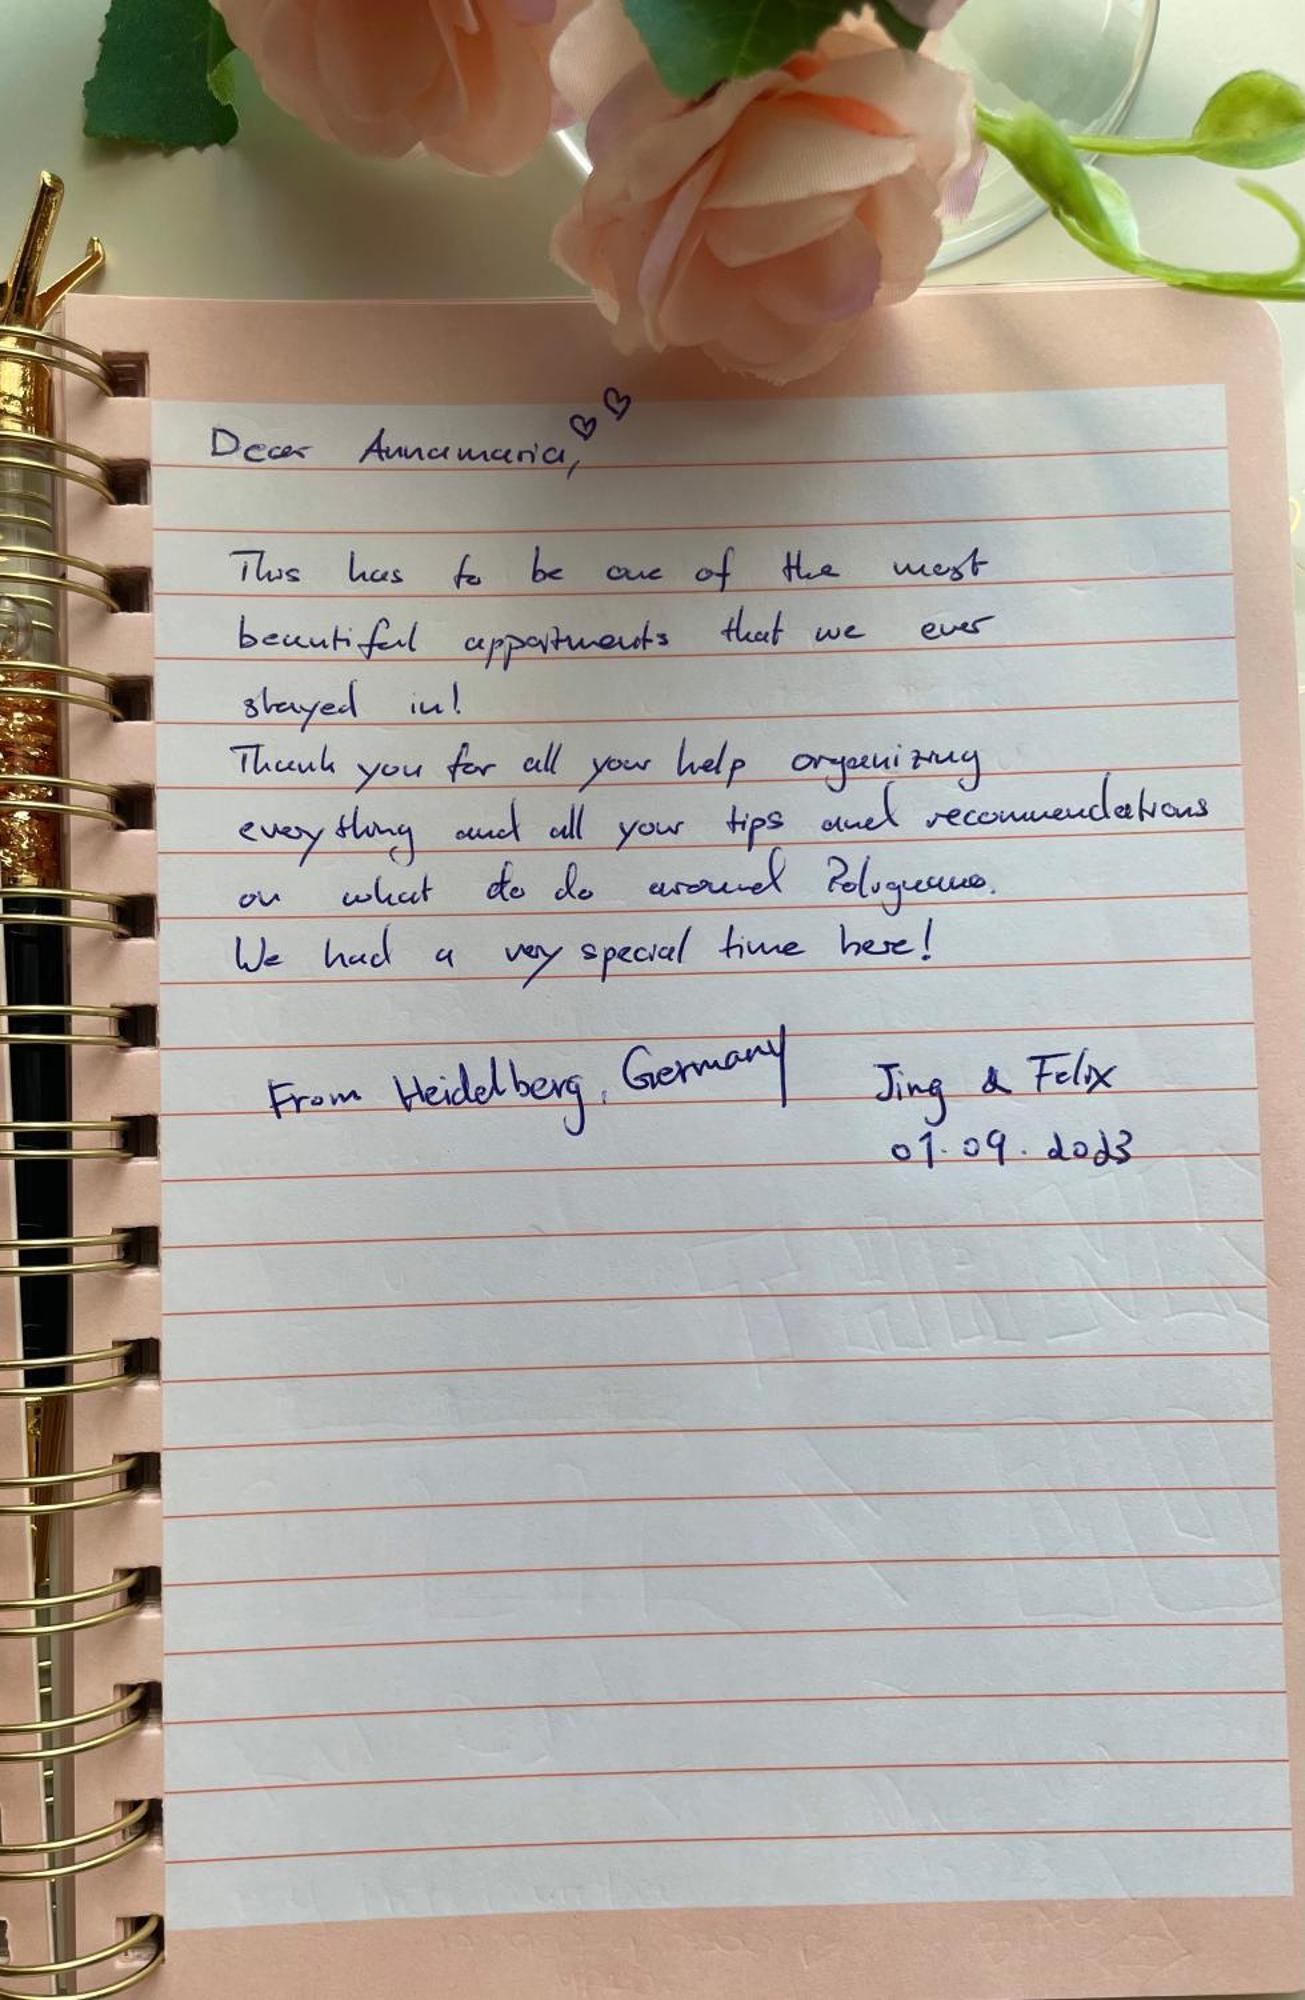 Dear Annamaria, ♡♡
This has to be one of the most
beautiful appartments that we ever
stayed in!
Thank you for all your help organizing
everything and all your tips and recommendations
on what do do around Polignano.
We had a very special time here!
From Heidelberg, Germany Jing & Felix
07.09.2023
THANK
YOU